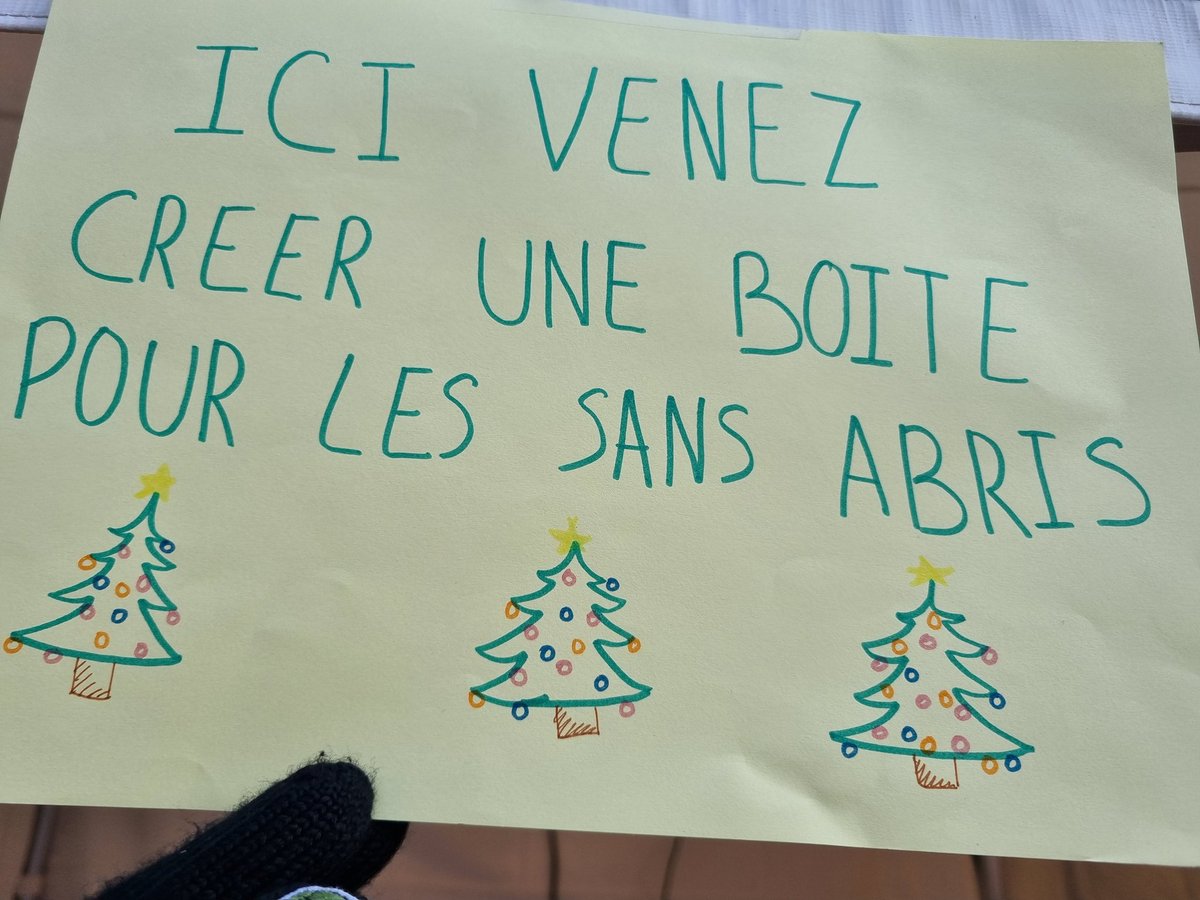 ICI VENEZ
CREER UNE BOITE
POUR LES SANS ABRIS